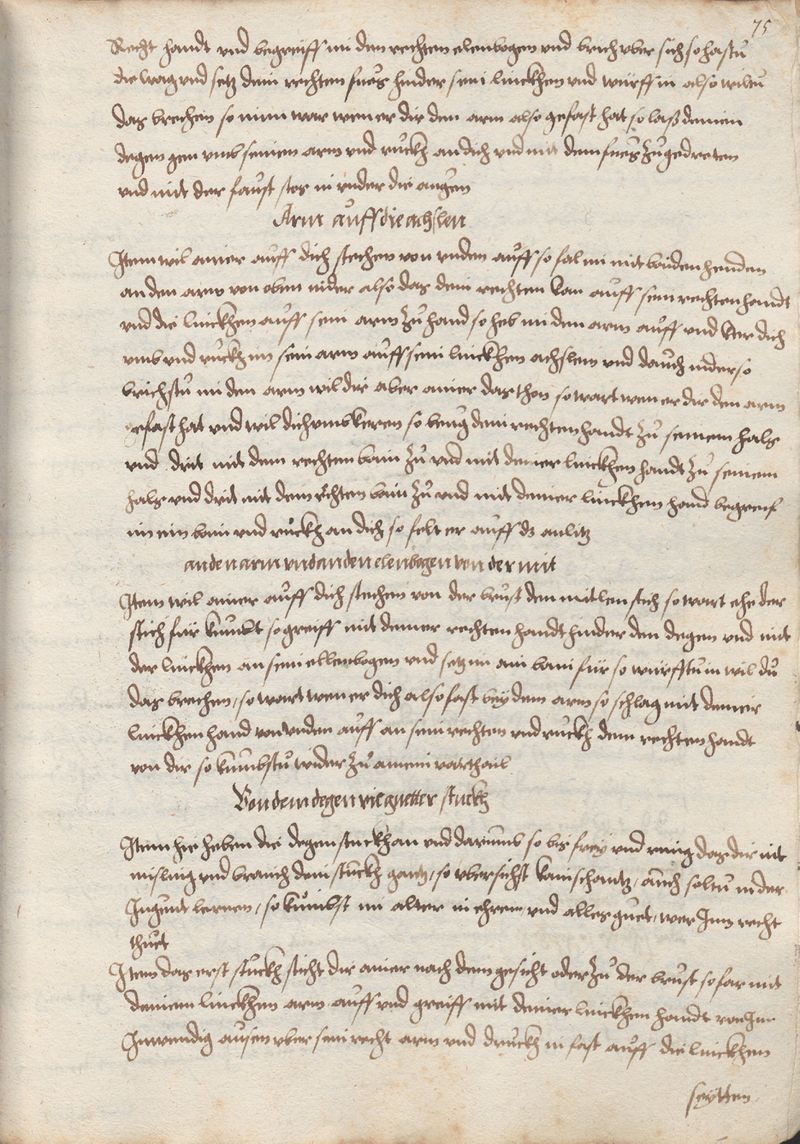 75
Recht handt und begreiff im den rechten elenbogen und brich uber sich so hastu
die wag und setz dein rechten fues hinder sein linckhen und würff in also wiltu
das brechen so nimm war wen er dir den arm also gefast hat so laß deinen
degen gen umb seinen arm und ruckh an dich und mit dem fueß zugedretten
und mit der faust stos in under die augen
Arm auff die achslen
Item wil ainer auff dich stechen von unden auff so fal im mit baiden henden
an den arm von oben nider also das dein rechten kom auff sein rechten handt
und die linckhen auff sein arm zuhand so heb im den arm auff und ker dich
umb und ruckh im sein arm auff sein linckhen achslen und dauch nider so
brichstu im den arm wil dir aber ainer das thon so wart wen er dir den arm
gefast hat und wil dich umbkeren so beug dein rechten handt zu seinem hals
und drit mit dem rechten bain zu und mit deiner linckhen handt zu seinem
hals und drit mit dem rechten bain zu und mit deiner linckhen hand begreif
im ein bain und ruckh an dich so felt er auff dz anlitz
an den arm und an den elenbogen von der mit
Item wil ainer auff dich stechen von der brust den mitlen stich so wart ehe der
stich für kumbt so greiff mit deiner rechten handt hinder den degen und mit
der linckhen an sein ellenbogen und setz im ain bain für so würfftu in wil du
das brechen, so wart wen er dich also fast bey dem arm so schlag mit deiner
linckhen hand von unden auff an sein rechten und ruckh dein rechten handt
von dir so kumbstu wider zu ainem vorthail
Von dem degen vil guetter stuckh
Item hie heben die degen stuckh an und darumb so bis frey und ring das dir nit
misling und brauch dein stuckh gantz, so ubersichst kain schantz, auch soltu in der
Jugent lernen, so kumbst im alter in ehren und alles guet, wer Imm recht
thuet
Item das erst stuckh sticht dir ainer nach dem gesicht oder zu der brust so far mit
deinem linckhen arm auff und greiff mit deiner linckhen handt von Im
Inwendig ausen uber sein recht arm und druckh in fast auff die linckhen
seytten